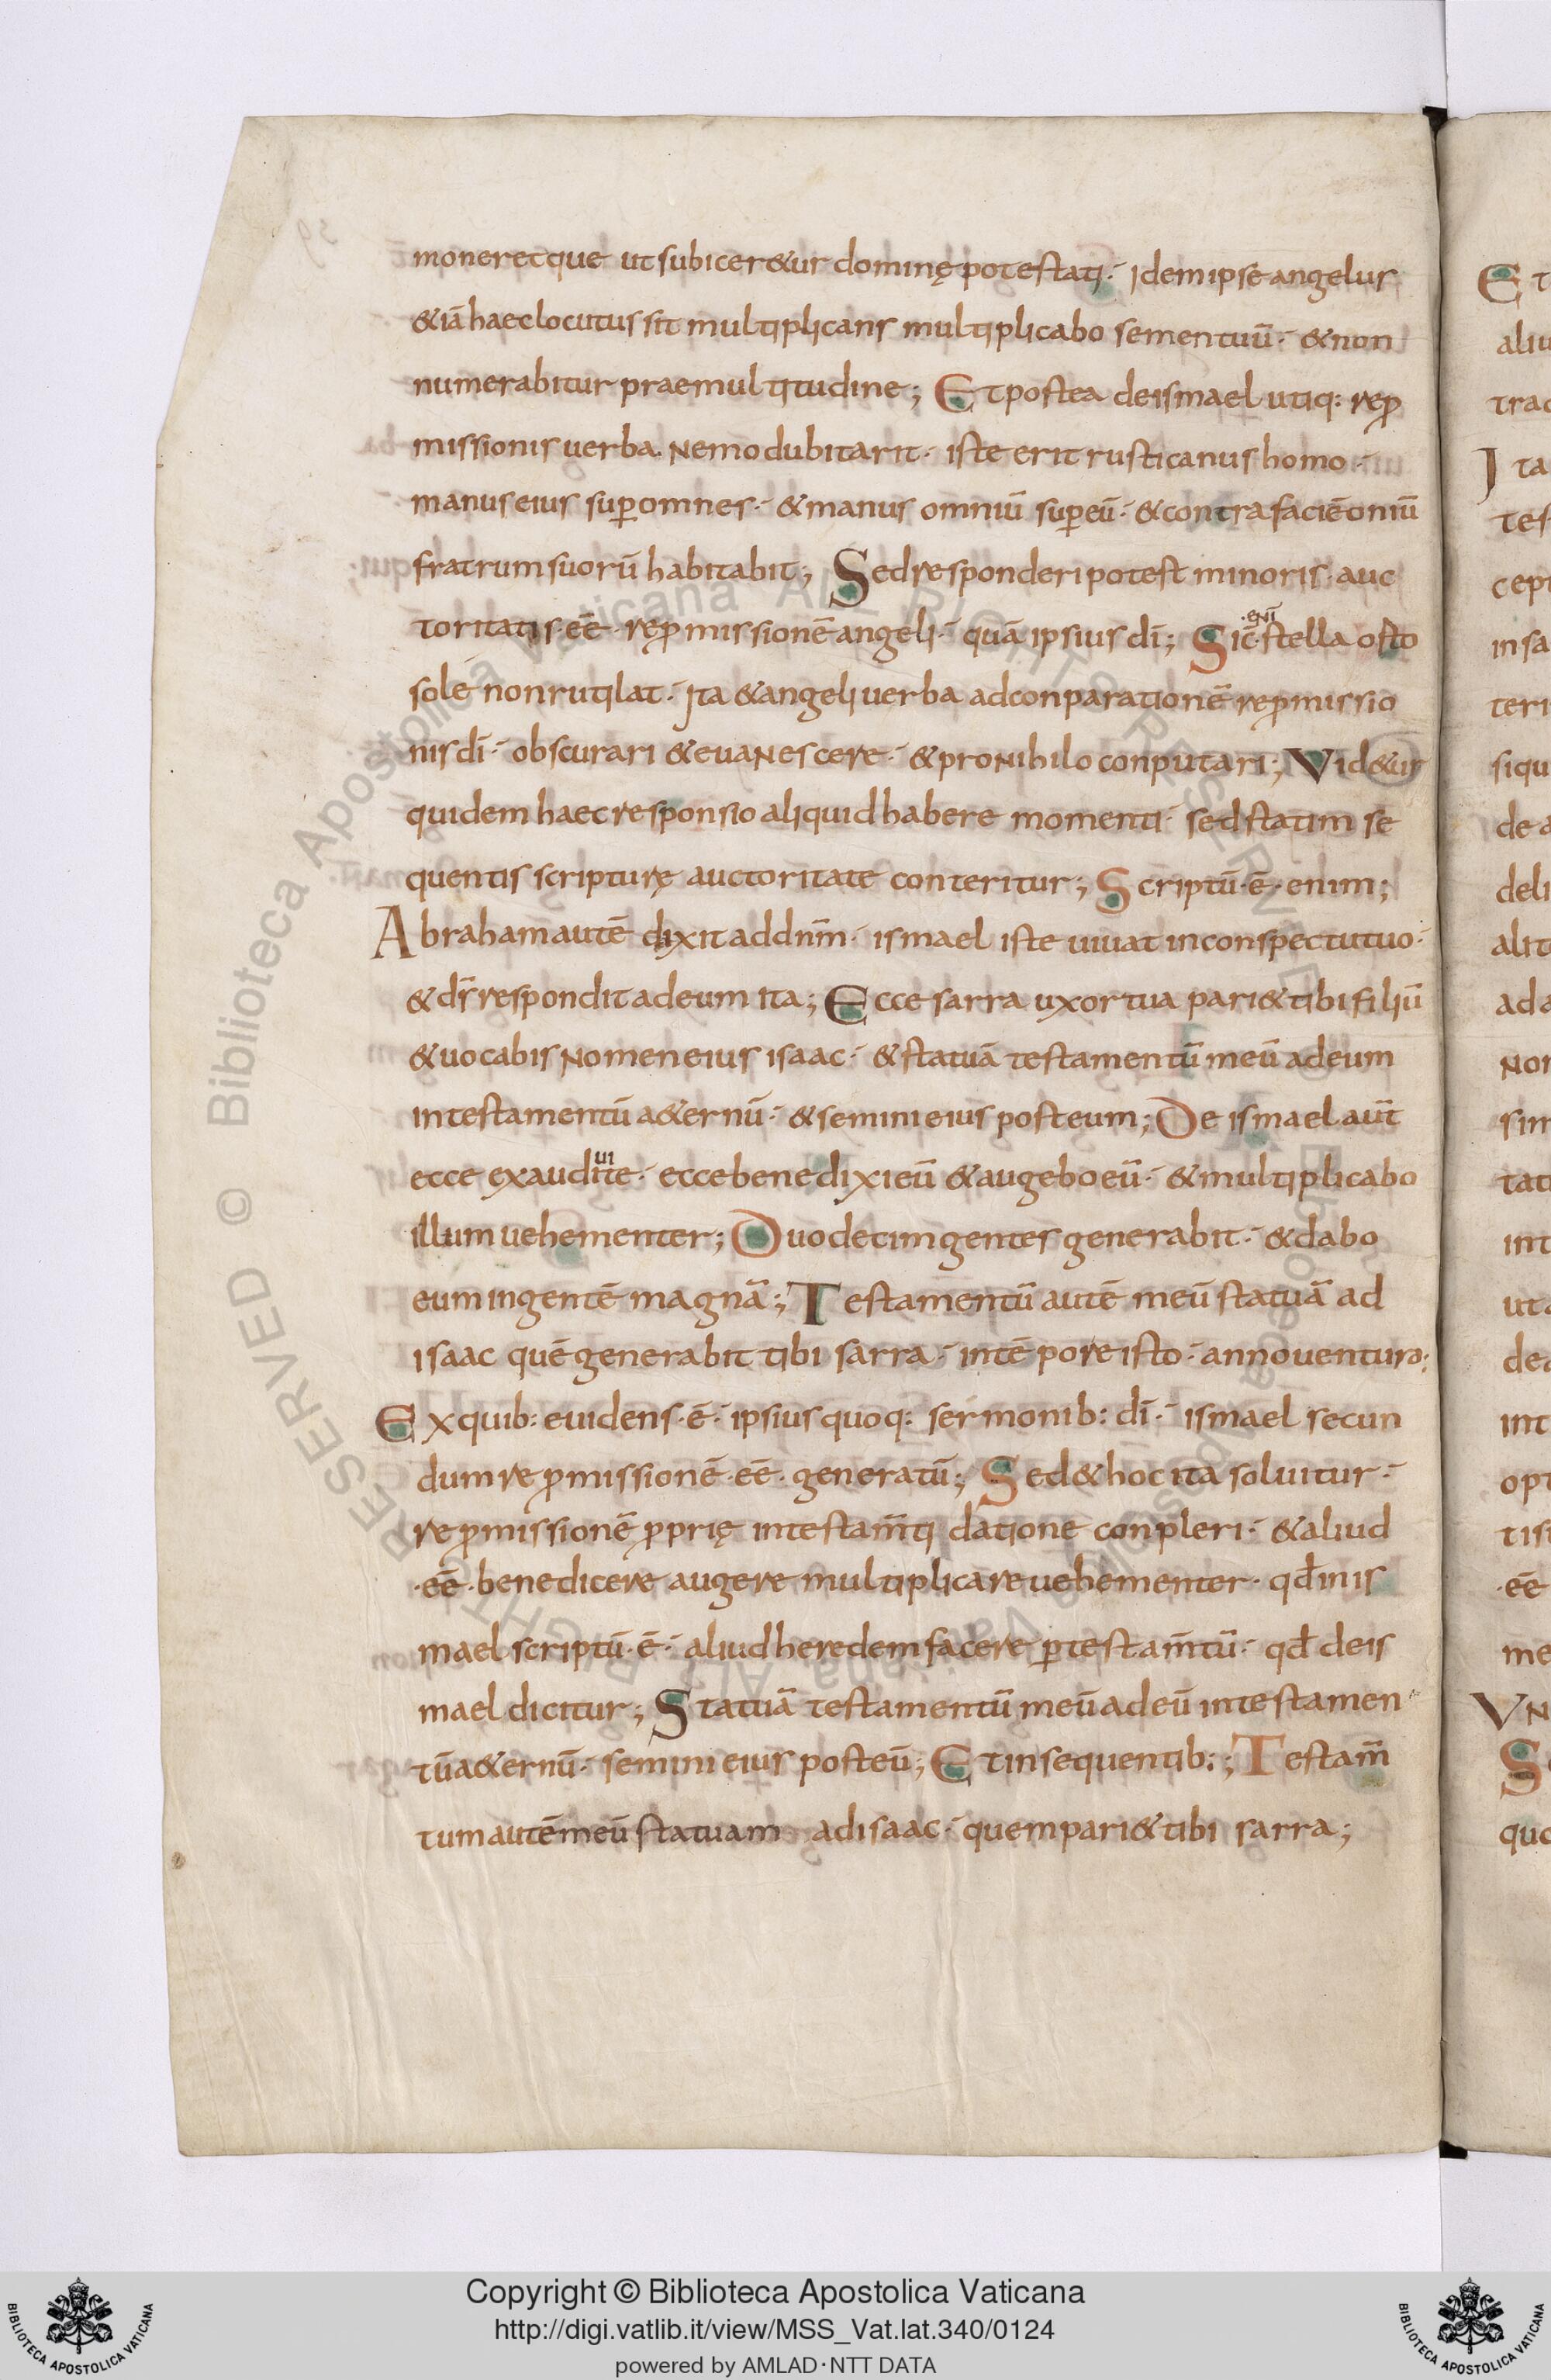 moneretque ut subicer&ur dominę potestati· Idem ipse angelus
&iā haec locutus sit multiplicans multiplicabo semen tuū· & non
numerabitur prae multitudine; Et postea de ismael utiq: rep̱ro
missionis uerba nemo dubitarit· iste erit rusticanus homo·
manus eius sup̱ omnes· & manus omniū sup̱ eū· & contra faciē omiū
fratrum suorū habitabit; Sed responderi potest minoris auc
toritatis·eē·rep̱missionē angeli· quā ipsius dī; Sic ·enī· stella osto
sole non rutilat· Ita & angeli uerba ad conparationē rep̱missio
nis dī· obscurari & euanescere· & pro nihilo conputari; Vid&ur
quidem haec responsio aliquid habere momenti· sed statim se
quentis scripturę auctoritate conteritur; Scriptū·ē·enim;
Abraham autē dixit ad dnm̄· ismael iste uiuat in conspectu tuo·
& ds̄ respondit ad eum ita; Ecce sarra uxor tua pari& tibi filiū
& uocabis nomen eius isaac· & statuā testamentū meū ad eum
in testamentū a&ernū· & semini eius post eum; De ismael aut̄
ecce exaudi ui te· ecce benedixi eū & augebo eū· & multiplicabo
illum uehementer; Duodecim gentes generabit· & dabo
eum in gentē magnā; Testamentū autē meū statuā ad
isaac quē generabit tibi sarra· in tēpore isto· anno uenturo;
Ex quib: euidens·ē· ipsius quoq: sermonib: dī· ismael secun
dum rep̱missionē·eē·generatū; Sed & hoc ita soluitur·
rep̱missionē p̱prię in testam̄ti datione conpleri· & aliud
·eē·benedicere augere multiplicare uehementer· qd̄ in is
mael scriptū·ē· aliud heredem facere p̱ testam̄tū· qd̄ de is
mael dicitur; Statuā testamentū meū ad eū in testamen
tū a&ernū· semini eius post eū; Et in sequentib:; Testam̄
tum autē meū statuam ad isaac· quem pari& tibi sarra;
Copyright © Biblioteca Apostolica Vaticana
http://digi.vatlib.it/view/MSS_Vat.lat.340/0124
powered by AMLAD·NTT DATA
BIBLIOTECA APOSTOLICA VATICANA
BIBLIOTECA APOSTOLICA VATICANA